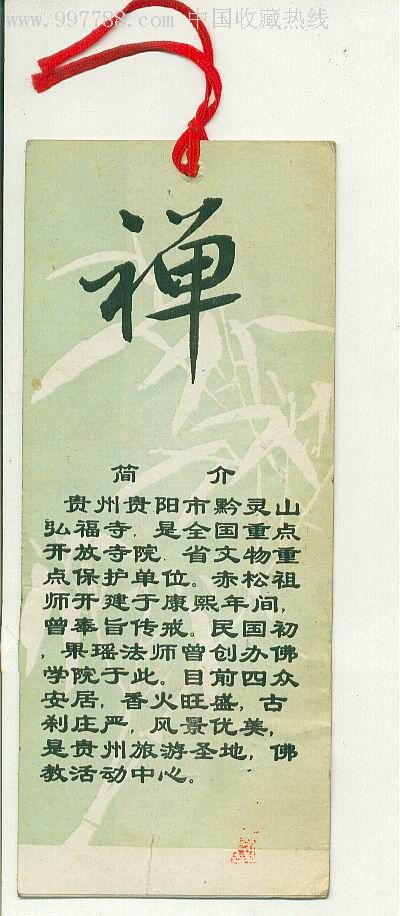 www.997788.com 中国收藏热线
禅
简 介
贵州贵阳市黔灵山
弘福寺,是全国重点
开放寺院,省文物重
点保护单位。赤松祖
师开建于康熙年间,
曾奉旨传戒。民国初
,果瑶法师曾创办佛
学院于此。目前四众
安居,香火旺盛,古
刹庄严,风景优美,
是贵州旅游圣地,佛
教活动中心。